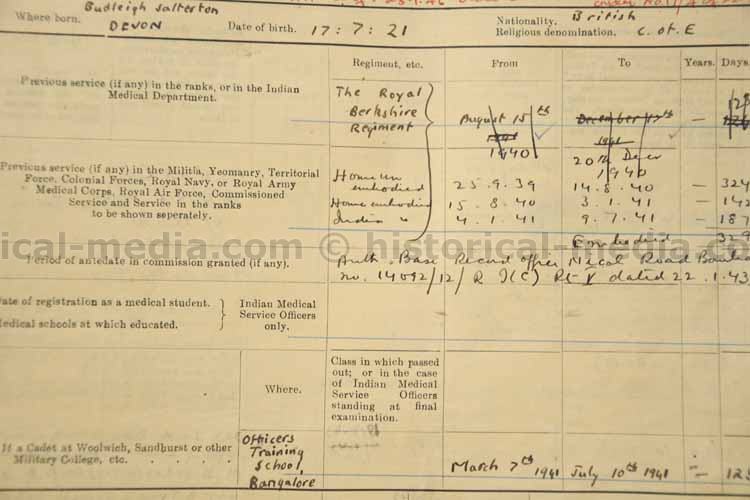 Where born. Budleigh Salterton
DEVON
Date of birth. 17 : 7 : 21
Nationality. British
Religious denomination. C. of E
Regiment, etc. From To Years. Days
Previous service (if any) in the ranks, or in the Indian
Medical Department.
The Royal
Berkshire
Regiment
August 15th
1941
1940
December 12th
1941
20th Decr
1940
—
Previous service (if any) in the Militia, Yeomanry, Territorial
Force, Colonial Forces, Royal Navy, or Royal Army
Medical Corps, Royal Air Force, Commissioned
Service and Service in the ranks
to be shown seperately.
Home un
embodied 25 . 9 . 39 14 . 8 . 40 — 324
Home embodied 15 . 8 . 40 3 . 1 . 41 — 142
India " 4 . 1 . 41 9 . 7 . 41 — 187
Embodied 329
ical-media.com © historical-media.com
Period of antedate in commission granted (if any).
Auth. Base Record office Road
no. 14092/12/R I(C) dated 22 . 1 . 43
Date of registration as a medical student.
Medical schools at which educated.
Indian Medical
Service Officers
only.
Where.
Class in which passed
out; or in the case
of Indian Medical
Service Officers
standing at final
examination.
If a Cadet at Woolwich, Sandhurst or other
Military College, etc. . . . .
Officers
Training
School,
Bangalore
March 7th 1941 July 10th 1941 —